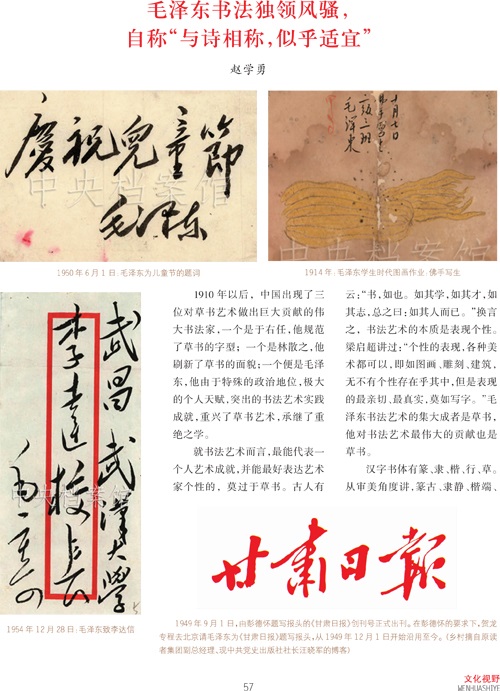 毛泽东书法独领风骚，
自称“与诗相称，似乎适宜”
赵学勇
慶祝兒童節
毛泽东
中央档案馆
1950年6月1日：毛泽东为儿童节的题词
二级二班
毛泽东
中央档案馆
1914年：毛泽东学生时代图画作业：佛手写生
武昌 武漢大學
李達 校長
中央档案馆
1954年12月28日：毛泽东致李达信
1910年以后，中国出现了三
位对草书艺术做出巨大贡献的伟
大书法家，一个是于右任，他规范
了草书的字型；一个是林散之，他
刷新了草书的面貌；一个便是毛泽
东，他由于特殊的政治地位，极大
的个人天赋，突出的书法艺术实践
成就，重兴了草书艺术，承继了重
绝之学。
就书法艺术而言，最能代表一
个人艺术成就，并能最好表达艺术
家个性的，莫过于草书。古人有
云：“书，如也。如其学，如其才，如
其志，总之曰：如其人而已。”换言
之，书法艺术的本质是表现个性。
梁启超讲过：“个性的表现，各种美
术都可以，即如图画、雕刻、建筑，
无不有个性存乎其中，但是表现
的最亲切、最真实，莫如写字。”毛
泽东书法艺术的集大成者是草书，
他对书法艺术最伟大的贡献也是
草书。
汉字书体有篆、隶、楷、行、草。
从审美角度讲，篆古、隶静、楷端、
甘肃日報
1949年9月1日，由彭德怀题写报头的《甘肃日报》创刊号正式出刊。在彭德怀的要求下，贺龙
专程去北京请毛泽东为《甘肃日报》题写报头，从1949年12月1日开始沿用至今。（乡村摘自原读
者集团副总经理、现中共党史出版社社长汪晓军的博客）
文化视野
WENHUASHIYE
57